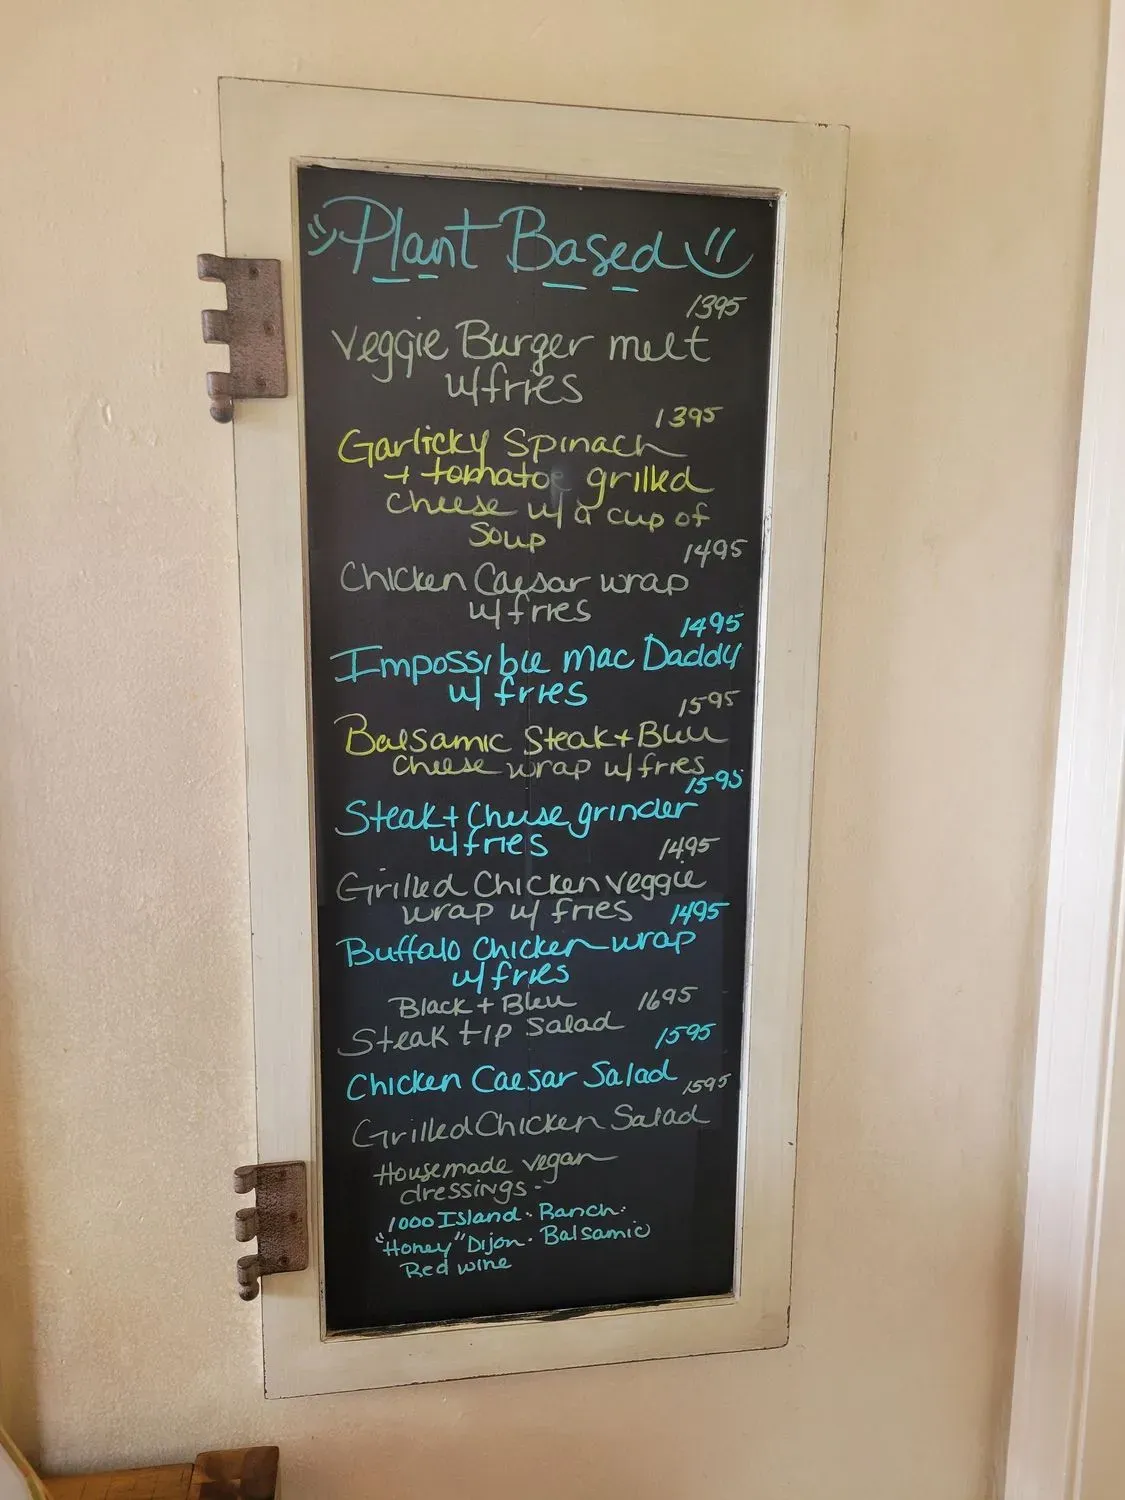 "Plant Based"
1395
Veggie Burger melt
w/fries
1395
Garlicky Spinach
+ tomatoe grilled
cheese w/ a cup of
Soup
1495
Chicken Caesar wrap
w/ fries
1495
Impossible Mac Daddy
w/ fries
1595
Balsamic Steak + Bleu
cheese wrap w/ fries
1595
Steak + Cheese grinder
w/fries
1495
Grilled Chicken Veggie
wrap w/ fries
1495
Buffalo Chicken wrap
w/ fries
Black + Bleu 1695
Steak tip Salad
1595
Chicken Caesar Salad
1595
Grilled Chicken Salad
Housemade vegan
dressings -
1000 Island · Ranch ·
"Honey" Dijon · Balsamic
Red wine